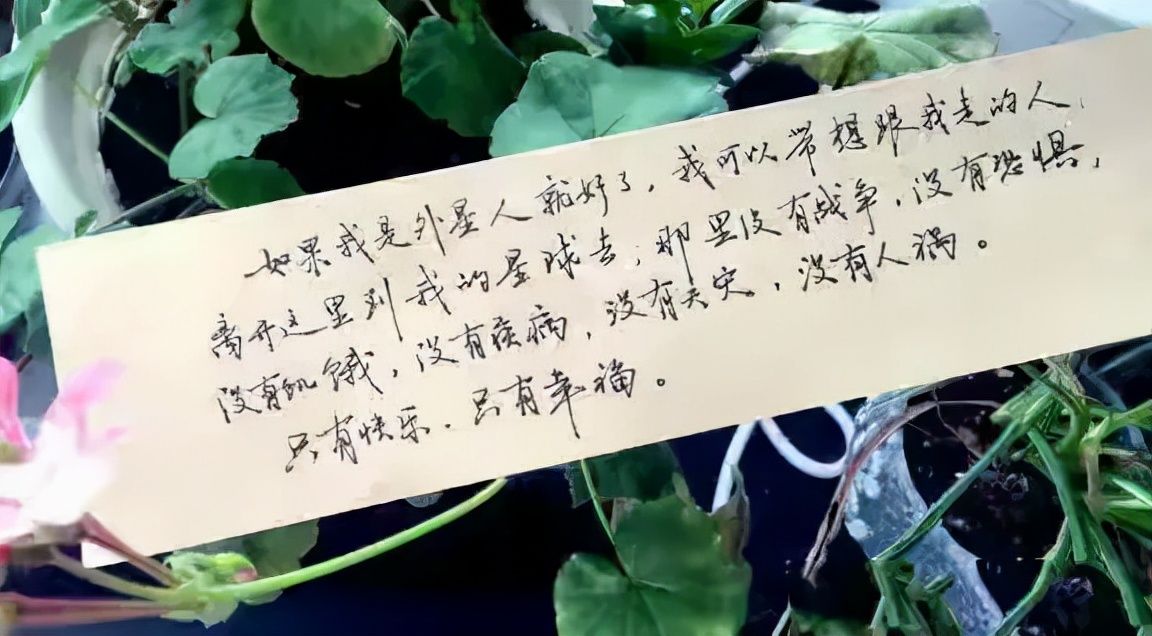 如果我是外星人就好了，我可以带想跟我走的人，
离开这里到我的星球去；那里没有战争，没有恐惧，
没有饥饿，没有疾病，没有天灾，没有人祸。
只有快乐．只有幸福。